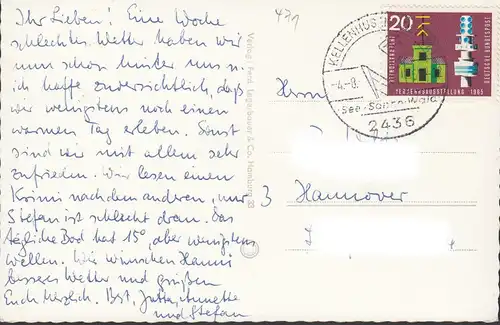 Ihr Lieben! Eine Woche
schlechtes Wetter haben wir
nun schon hinter uns u.
ich hoffe zuversichtlich, daß
wir wenigstens noch einen
warmen Tag erleben. Sonst
sind wir mit allem sehr
zufrieden. Wir lesen einen
Krimi nach dem anderen, nur
Stefan ist schlecht dran. Das
tägliche Bad hat 15°, aber wenigstens
Wellen. Wir wünschen Hanni
besseres Wetter und grüßen
Euch herzlich. Jutta, Annette
und Stefan
Verlag Ferd. Lagerbauer & Co. Hamburg
471
KELLENHUS
-4.-8.
See-Sonne-Wald
2436
20
DEUTSCHE BUNDESPOST
VERKEHRSAUSSTELLUNG 1965
Herrn
3 Hannover